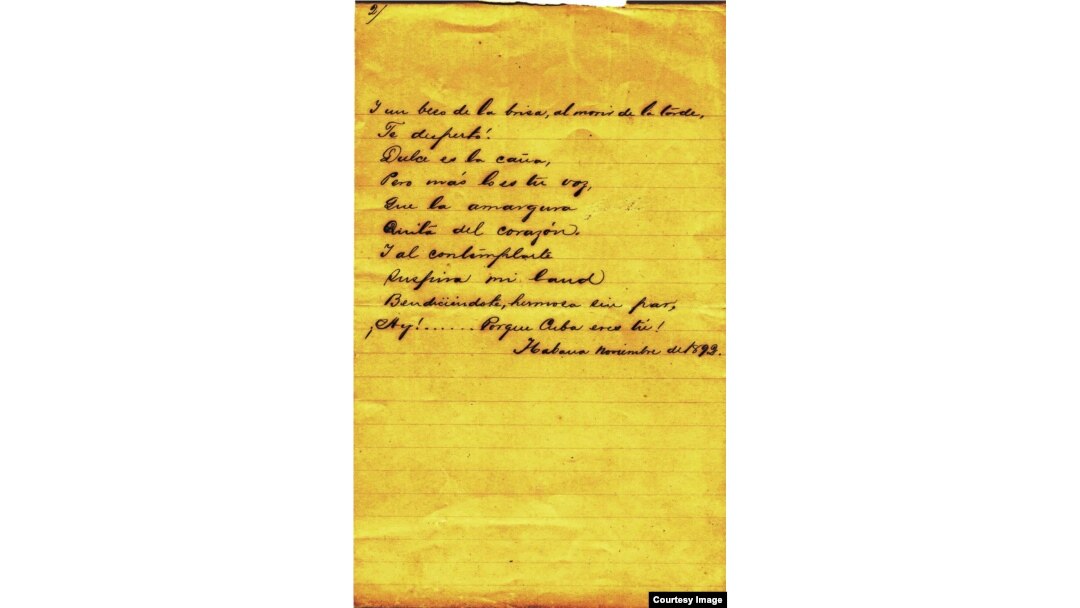 2/
I un beso de la brisa, al morir de la tarde,
Te despertó!
Dulce es la caña,
Pero más lo es tu voz,
Que la amargura
Quita del corazón.
I al contemplarte
Suspira mi laud
Bendiciéndote, hermosa sin par,
¡Ay!...... Porque Cuba eres tú!
Habana noviembre de 1892.
Courtesy Image